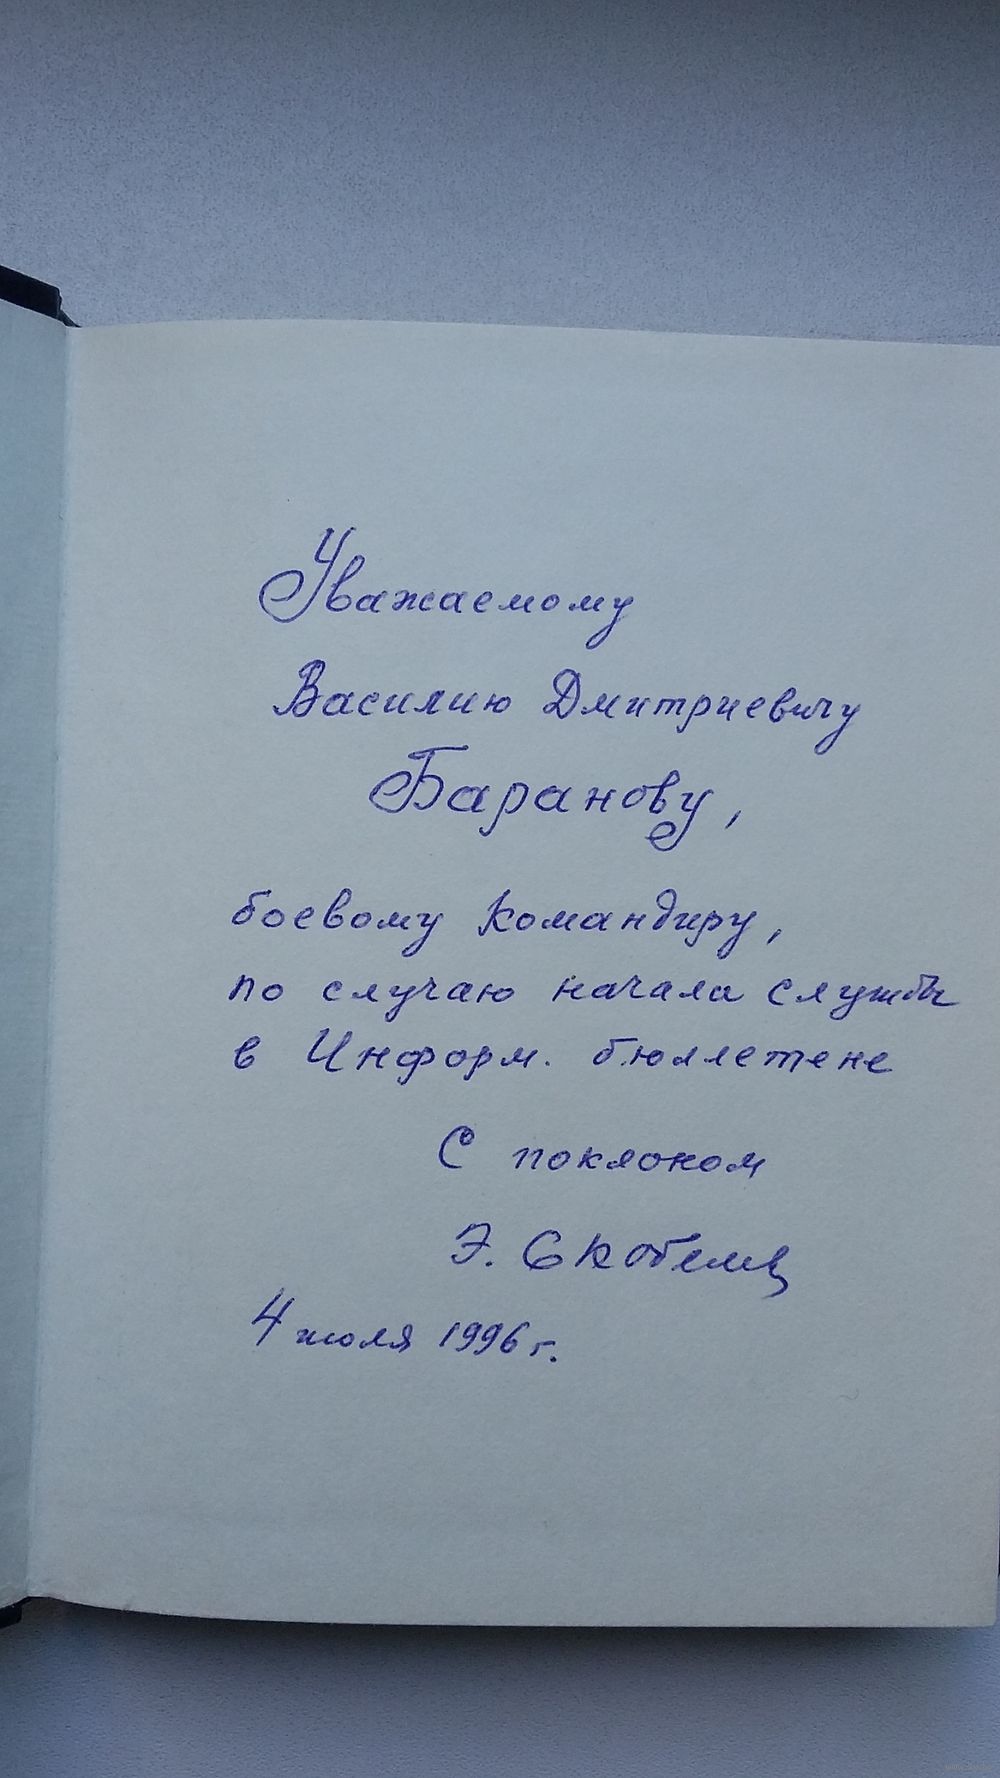 Уважаемому
Василию Дмитриевичу
Баранову,
боевому командиру,
по случаю начала службы
в Информ. бюллетене
С поклоном
Э. Скобелев
4 июля 1996 г.